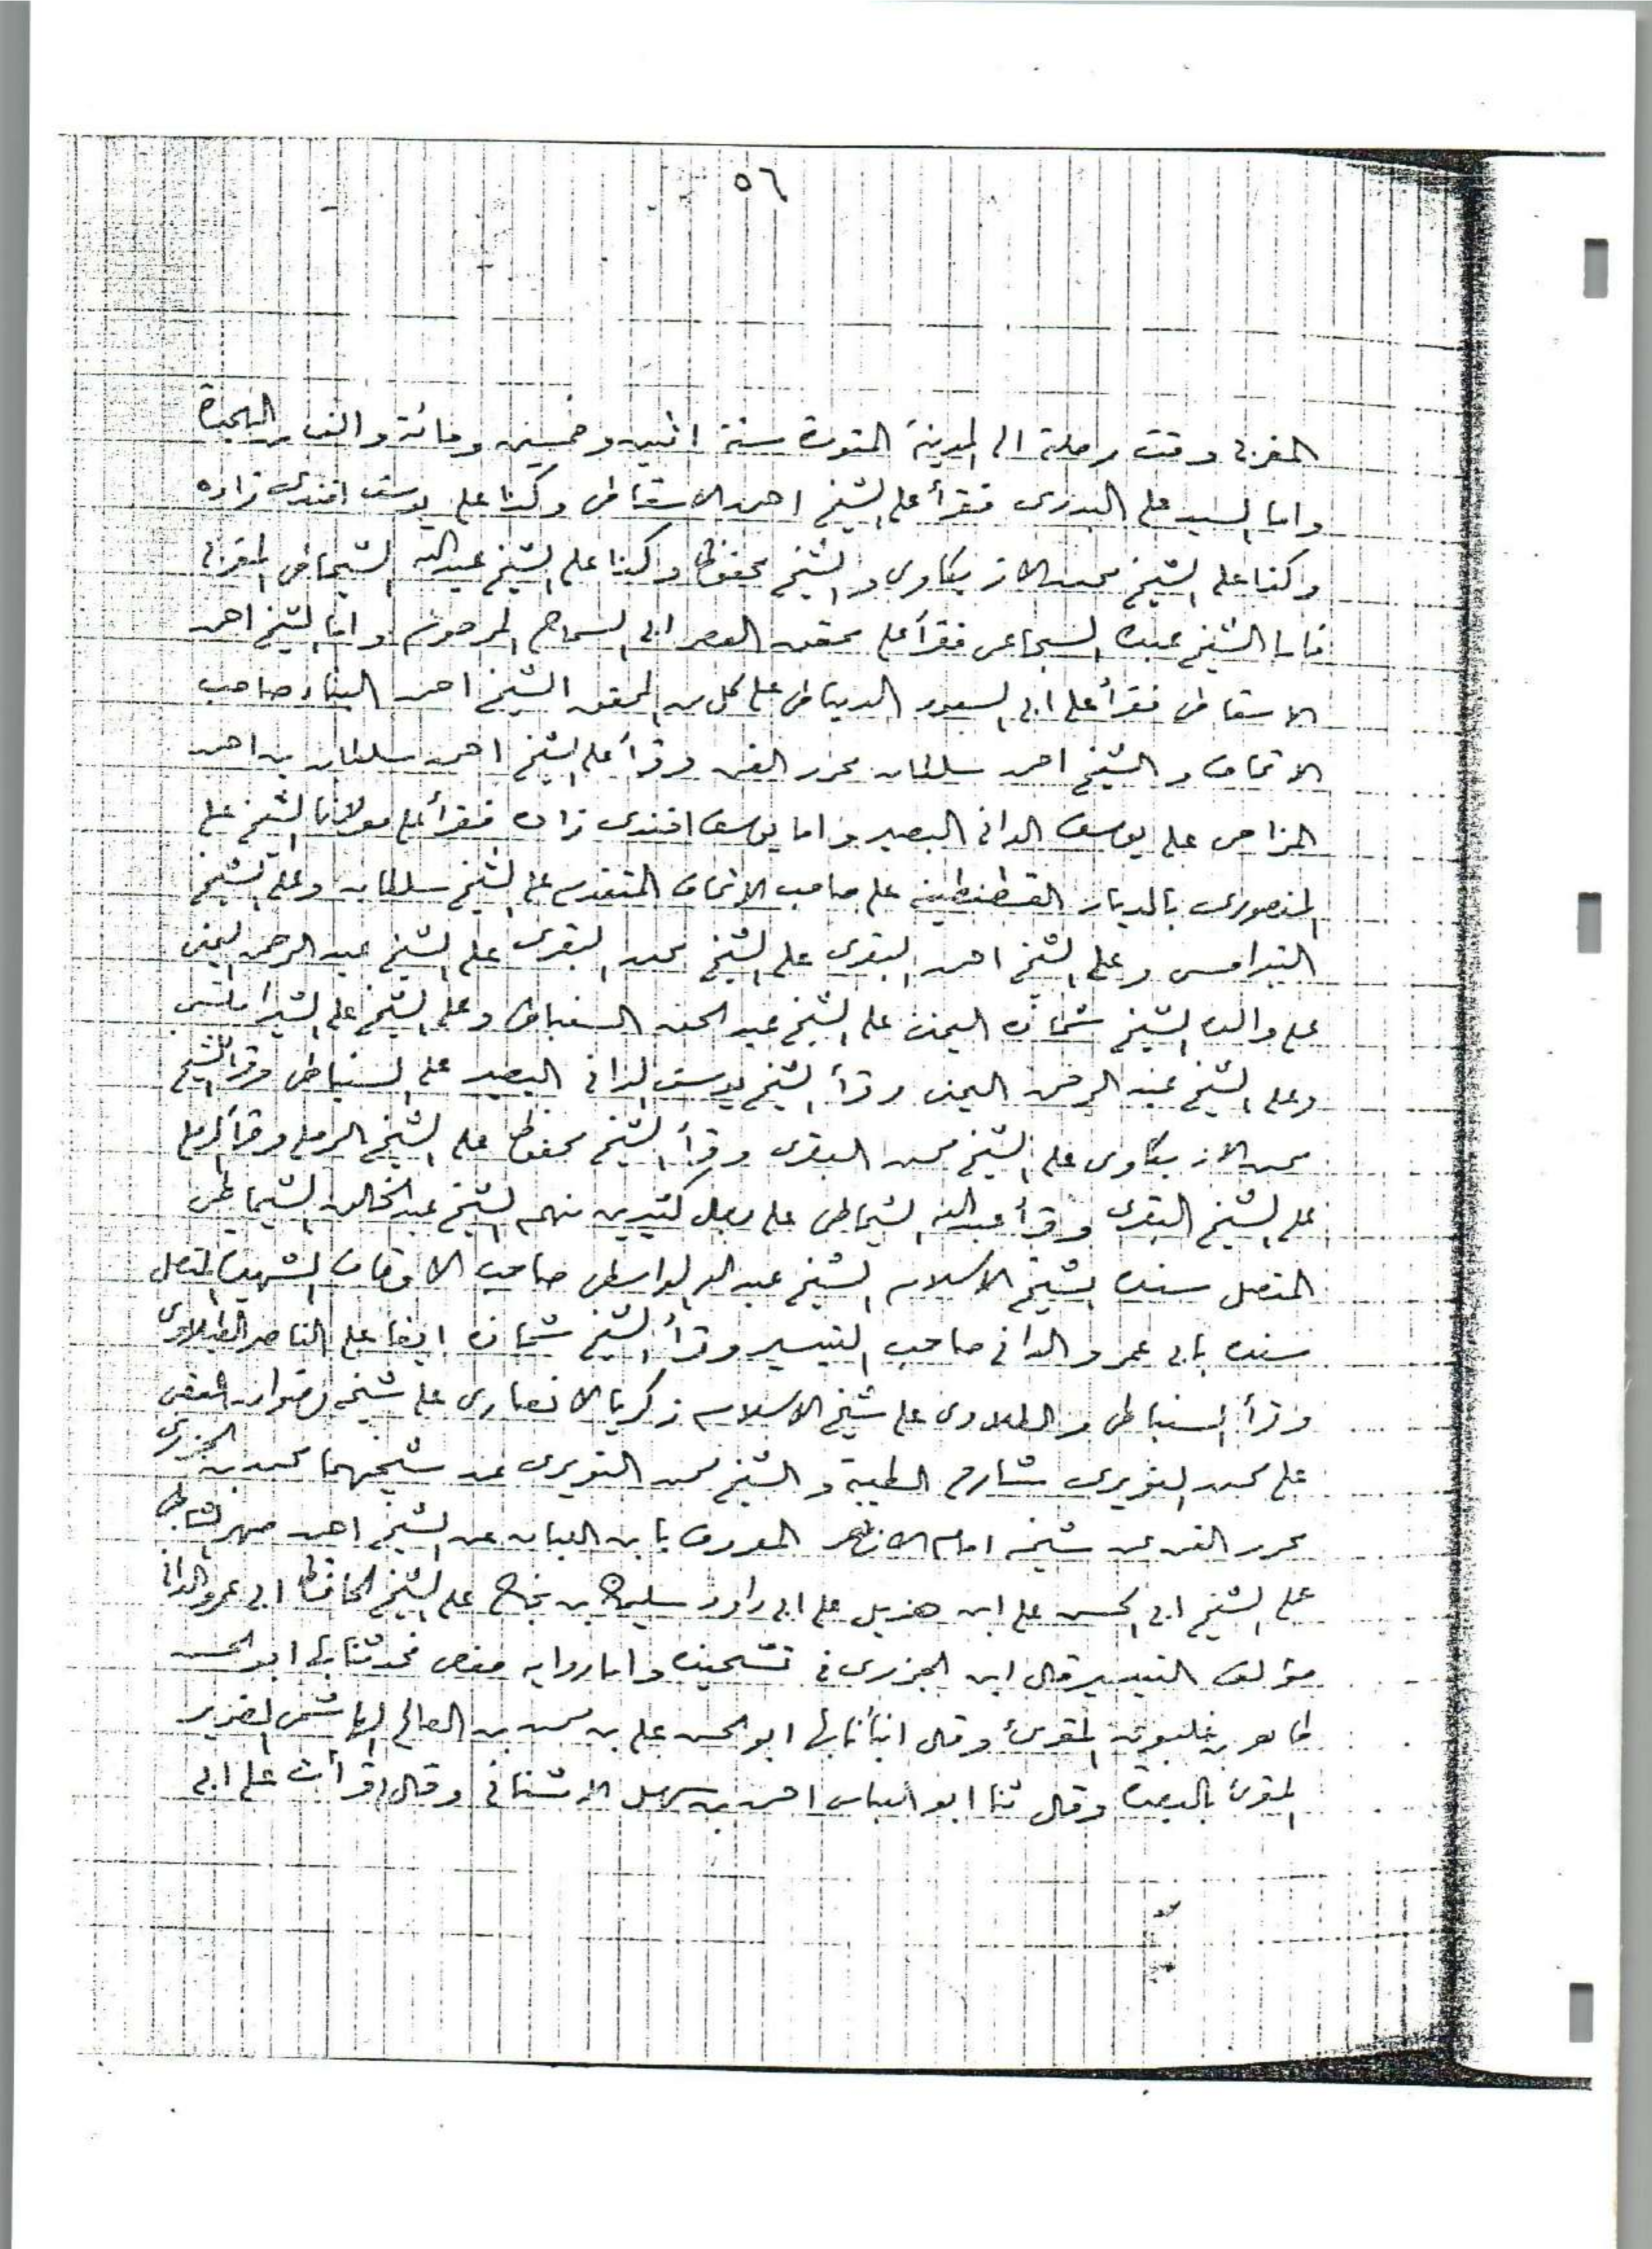 ٥٦
المغربى وقت رحلته الى المدينة المنورة سنة اثنين وخمسين ومائة والف من الهجرة
واما السيد على البدرى فقرأ على الشيخ احمد الاسقاطى وكذا على يوسف افندى زاده
وكذا على الشيخ محمد الازبكاوى والشيخ محفوظ وكذا على الشيخ عبد الله الشماطى المغربى
فاما الشيخ عبده السجاعى فقرأ على محقق العصر ابى السماح المرحوم واما الشيخ احمد
الاسقاطى فقرأ على ابى السعود الدمياطى على كل من المحقق الشيخ احمد البناء صاحب
الاتحاف والشيخ احمد سلطان محرر الفن وقرأ على الشيخ احمد سلطان بن احمد
المزاحى على يوسف الدانى البصير واما يوسف افندى زاده فقرأ على مولانا الشيخ على
المنصورى بالديار القسطنطينية على صاحب الاتحاف المتقدم على الشيخ سلطان وعلى الشيخ
الشبرامسى وعلى الشيخ احمد البقرى على الشيخ محمد البقرى على الشيخ عبد الرحمن اليمنى
على والده الشيخ شحاذه اليمنى على الشيخ عبد الحق السنباطى وعلى الشيخ على الشبراملسى
وعلى الشيخ عبد الرحمن اليمنى وقرأ الشيخ يوسف الدانى البصير على السنباطى وقرأ الشيخ
محمد الازبكاوى على الشيخ محمد البقرى وقرأ الشيخ محفوظ على الشيخ الرملى وقرأ الرملى
على الشيخ البقرى وقرأ عبد الله الشماطى على رجال كثيرين منهم الشيخ عبد الخالق الشماطى
المتصل سنده بشيخ الاسلام الشيخ عبد الله الواسطى صاحب الاوقاف الشهير المتصل
سنده بابى عمرو الدانى صاحب التيسير وقرأ الشيخ شحاذه ايضا على الناصر الطبلاوى
وقرأ السنباطى والطبلاوى على شيخ الاسلام زكريا الانصارى على شيخه رضوان العقبى
على محمد النويرى شارح الطيبة والشيخ محمد النويرى عن شيخهما محمد بن الجزرى
محرر الفن عن شيخه امام الازهر المعروف بابن اللبان عن الشيخ احمد صهر الشاطبى
على الشيخ ابى الحسن على ابن هذيل على ابى داود سليمان بن نجاح على الشيخ الحافظ ابى عمرو الدانى
مؤلف التيسير قال ابن الجزرى فى واما رواية حفص فحدثنا بها ابو الحسن
طاهر بن غلبون المقرئ وقال انبأنا بها ابو الحسن على بن محمد بن الصالح الهاشمى الضرير
المقرئ بالبصرة وقال ثنا ابو العباس احمد بن سهل الاشنانى وقال قرأت على ابى